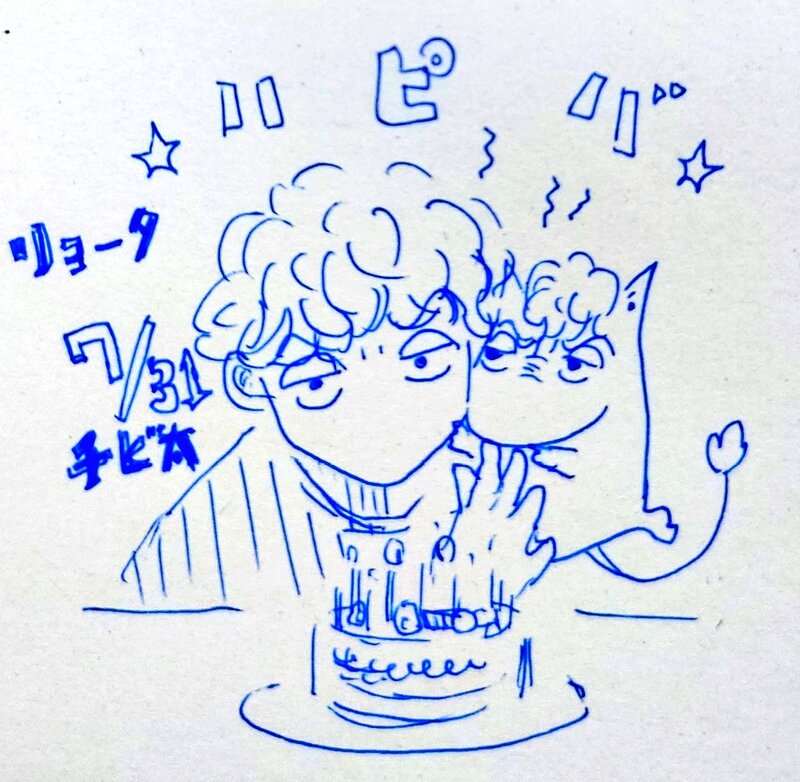 ハピバ
リョータ
7/31
チビ太